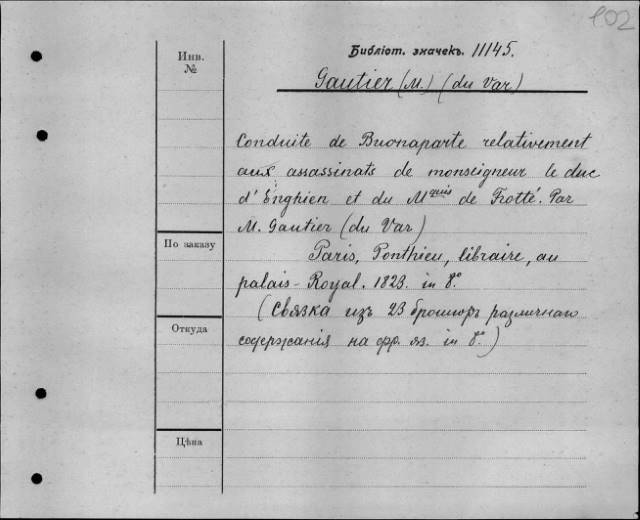 102
Инв.
№
Библіот. значекъ. 11145.
Gautier (M.) (du Var)
Conduite de Buonaparte relativement
aux assassinats de monseigneur le duc
d'Enghien et du Mquis de Frotté. Par
M. Gautier (du Var)
По заказу
Paris, Ponthieu, libraire, au
palais-Royal. 1823. in 8.°
(Связка изъ 23 брошюръ различнаго
Откуда
содержанія на фр. яз. in 8.°)
Цѣна